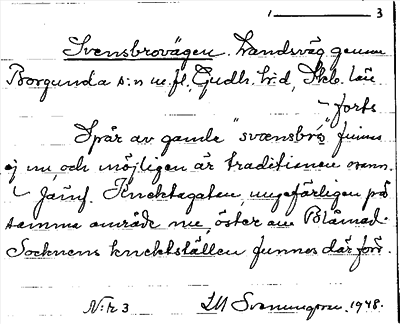 1 ——— 3
Svensbrovägen. Landsväg genom
Borgunda s:n m.fl., Gudh. h:d, Skb. län
– forts
Spår av gamle "svensbro" finnes
ej nu, och möjligen är traditionen osann.
– Jämf. Knektagatan, ungefärligen på
samma område nu, öster om Blåmad.
Socknens knektställen funnos där förr.
N:r 3 LM Svanungson. 1948.